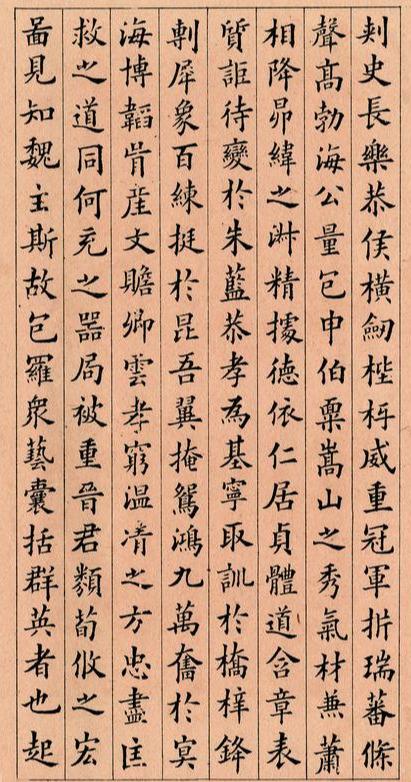 刾史長樂恭侯橫劒梐枑威重冠軍析瑞蕃條
聲髙勃海公量包申伯稟嵩山之秀氣材兼蕭
相降昴緯之淑精據德依仁居貞體道含章表
質詎待變於朱藍恭孝為基寧取訓於橋梓鋒
剸犀象百練挺於昆吾翼掩鴛鴻九萬奮於冥
海博韜胄産文贍卿雲孝窮温凊之方忠盡匡
救之道同何充之器局被重晉君類荀攸之宏
啚見知魏主斯故包羅衆藝囊括群英者也起